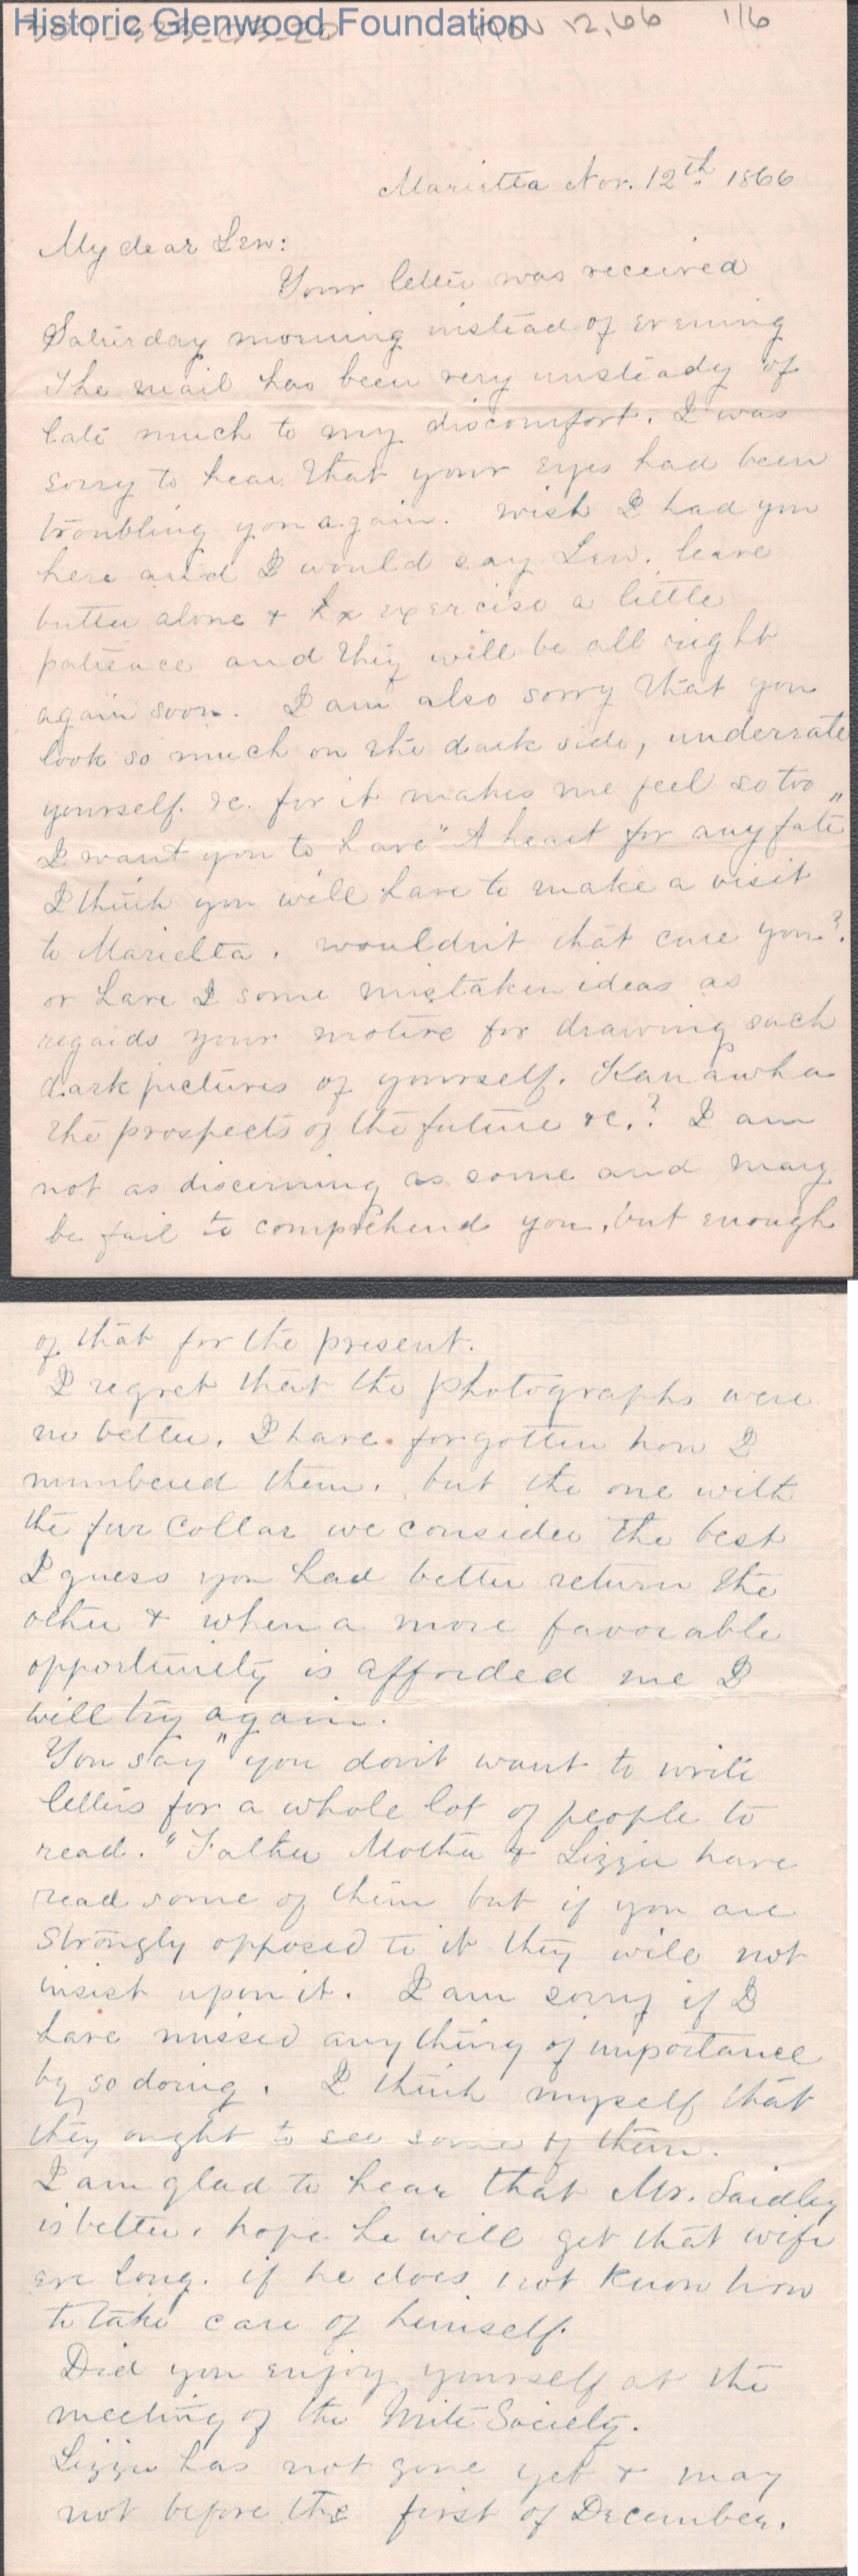 Historic Glenwood Foundation
Nov 12, 66 1/6
Marietta Nov. 12th 1866
My dear Lew:
Your letter was received
Saturday morning instead of evening
The mail has been very unsteady of
late much to my discomfort. I was
sorry to hear that your eyes had been
troubling you again. wish I had you
here and I would say Lew. leave
butter alone & exercise a little
patience and they will be all right
again soon. I am also sorry that you
look so much on the dark side, underrate
yourself. &c. for it makes me feel so too
I want you to have "A heart for any fate"
I think you will have to make a visit
to Marietta. wouldn't that cure you?.
or have I some mistaken ideas as
regards your motive for drawing such
dark pictures of yourself. Kanawha
the prospects of the future &c.? I am
not as discerning as some and may
be fail to comprehend you, but enough
of that for the present.
I regret that the photographs were
no better. I have forgotten how I
numbered them. but the one with
the fur Collar we consider the best
I guess you had better return the
other & when a more favorable
opportunity is afforded me I
will try again.
You say "you don't want to write
letters for a whole lot of people to
read." Father Mother & Lizzie have
read some of them but if you are
strongly opposed to it they will not
insist upon it. I am sorry if I
have missed any thing of importance
by so doing. I think myself that
they ought to see some of them.
I am glad to hear that Mr. Saidley
is better, hope he will get that wife
ere long. if he does not know how
to take care of himself.
Did you enjoy yourself at the
meeting of the Mite Society.
Lizzie has not gone yet & may
not before the first of December.